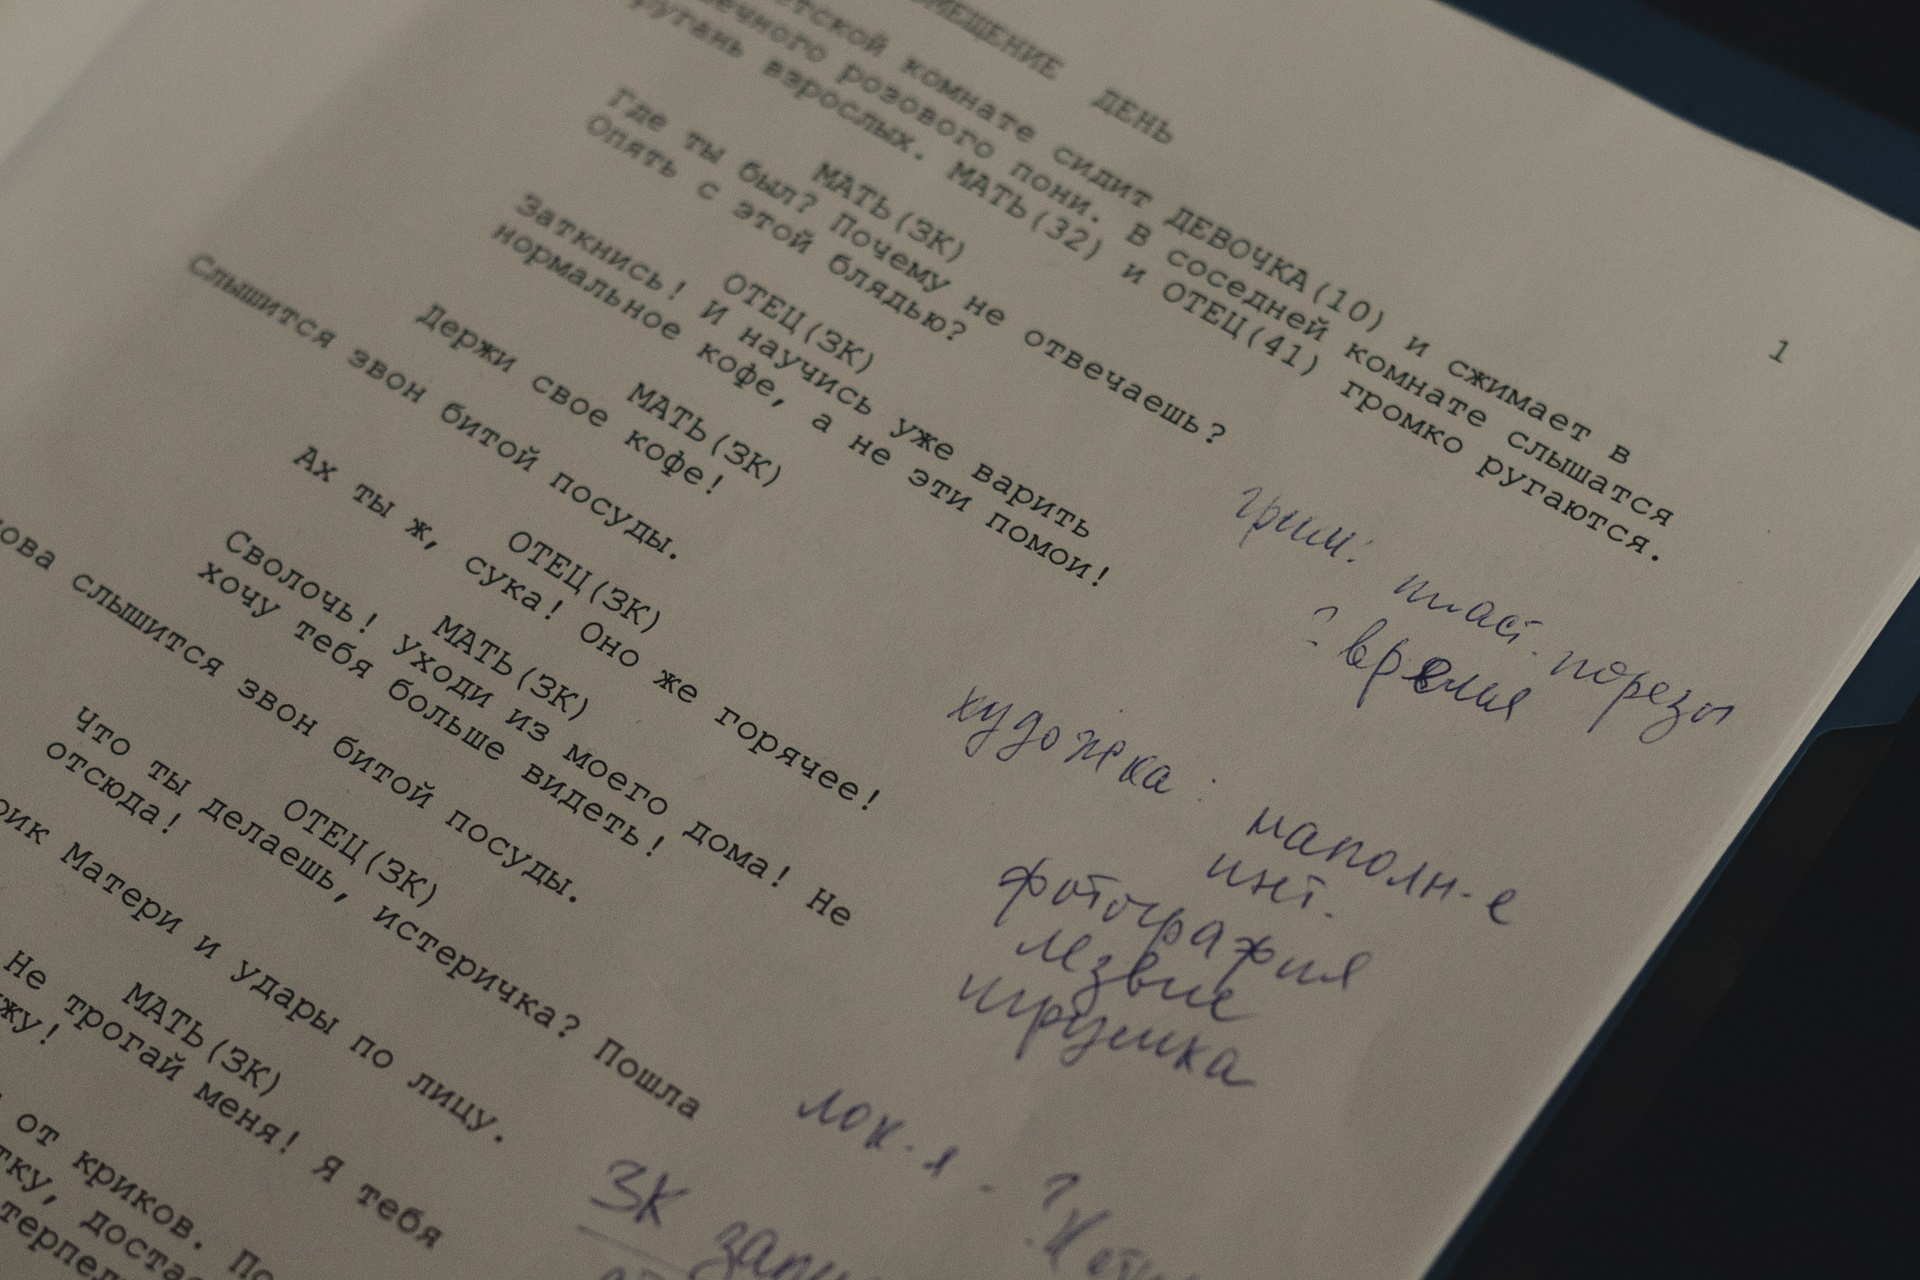 ПОМЕЩЕНИЕ ДЕНЬ
1
детской комнате сидит ДЕВОЧКА(10) и сжимает в
розового пони. В соседней комнате слышатся
ругань взрослых. МАТЬ(32) и ОТЕЦ(41) громко ругаются.
МАТЬ(ЗК)
Где ты был? Почему не отвечаешь?
Опять с этой блядью?
ОТЕЦ(ЗК)
Заткнись! И научись уже варить
нормальное кофе, а не эти помои!
МАТЬ(ЗК)
Держи свое кофе!
Слышится звон битой посуды.
ОТЕЦ(ЗК)
Ах ты ж, сука! Оно же горячее!
МАТЬ(ЗК)
Сволочь! Уходи из моего дома! Не
хочу тебя больше видеть!
слышится звон битой посуды.
ОТЕЦ(ЗК)
Что ты делаешь, истеричка? Пошла
отсюда!
Матери и удары по лицу.
МАТЬ(ЗК)
Не трогай меня! Я тебя
от криков.
грим: пласт. порезы
? время
художка: наполн-е
инт.
фотография
лезвие
игрушка
лок-я - ?
ЗК